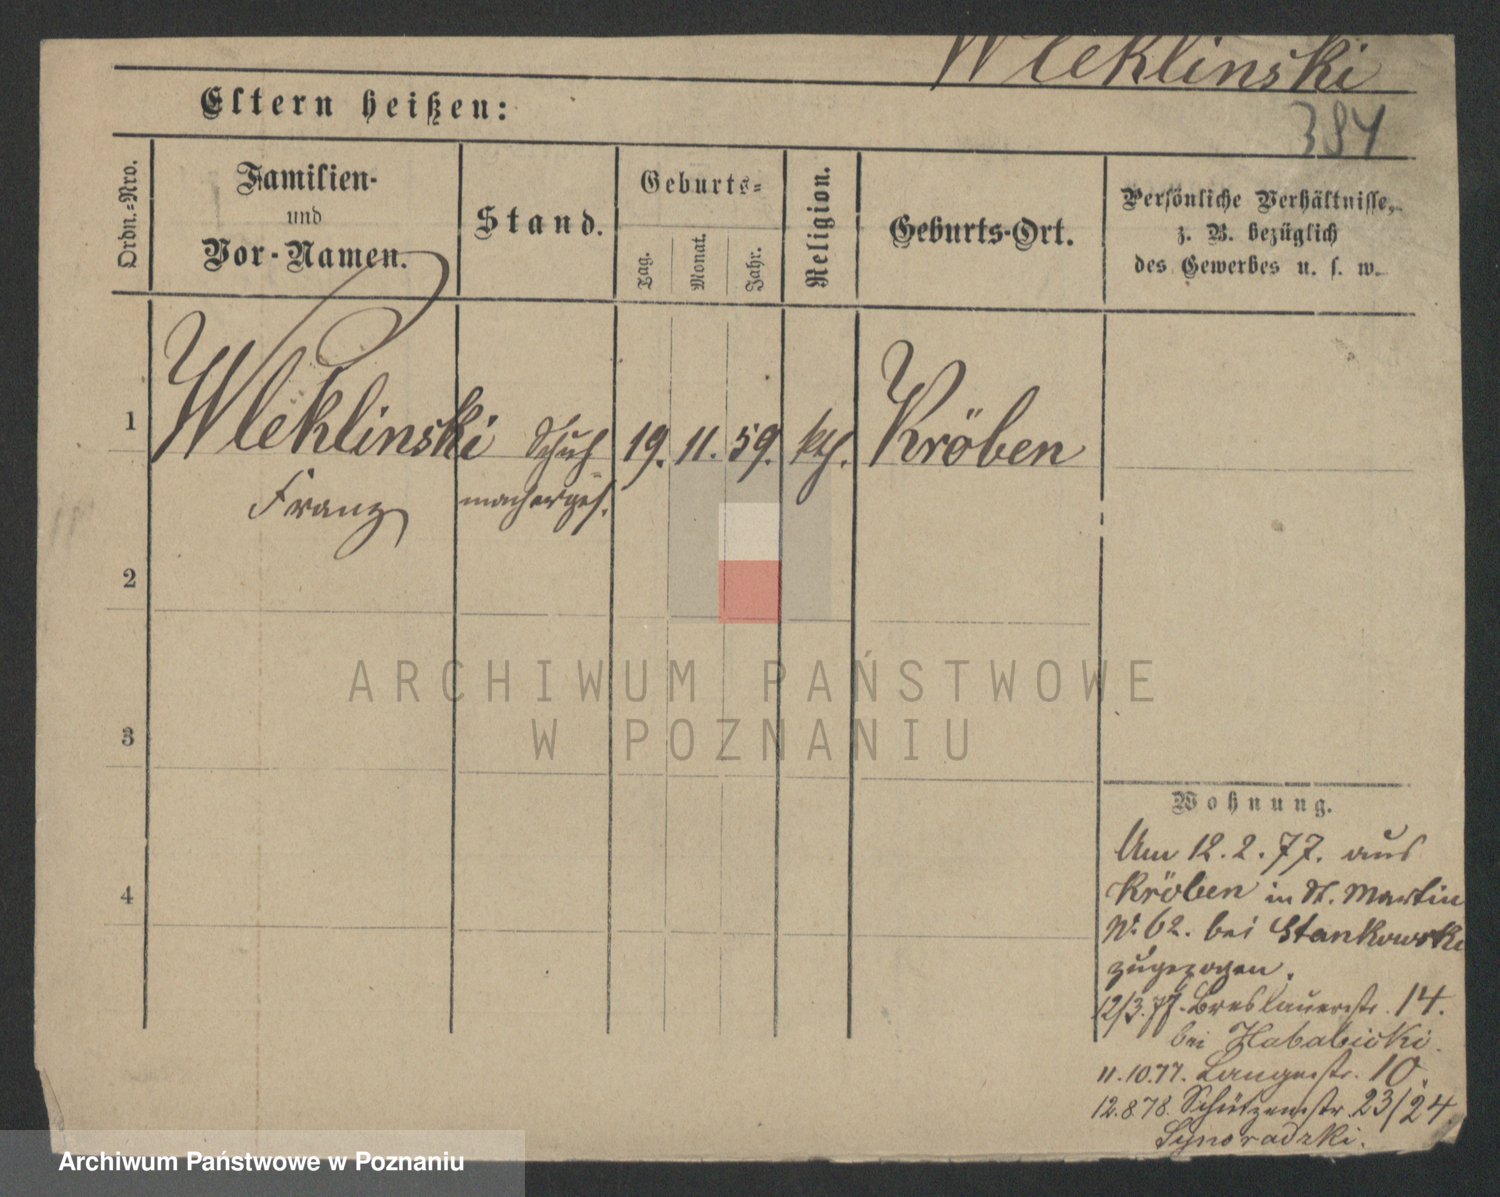 Wleklinski
Eltern heißen:
384
Ordn.-Nro.
Familien-
und
Vor-Namen.
Stand.
Geburts-
Tag.
Monat.
Jahr.
Religion.
Geburts-Ort.
Persönliche Verhältnisse,
z. B. bezüglich
des Gewerbes u. s. w.
1
Wleklinski Schuh 19. 11. 59. kth. Kröben
Franz machergés.
2
ARCHIWUM PAŃSTWOWE
W POZNANIU
3
4
Wohnung.
Am 12.2.77. aus
Kröben in St. Martin
No 62. bei Stankowski
zugezogen.
12/3.77. Breslauerstr. 14.
bei
11.10.77. Langestr. 10.
12.8.78. Schützenstr. 23/24
Synoradzki.
Archiwum Państwowe w Poznaniu